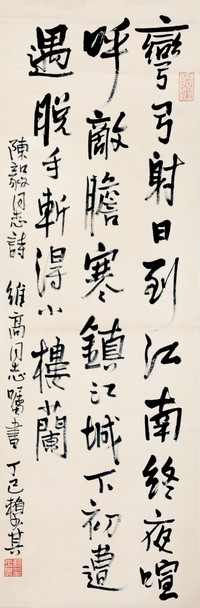 彎弓射日到江南終夜喧
呼敵膽寒鎮江城下初遭
遇脫手斬得小樓蘭
陳毅同志詩 維高同志囑書 丁巳賴少其